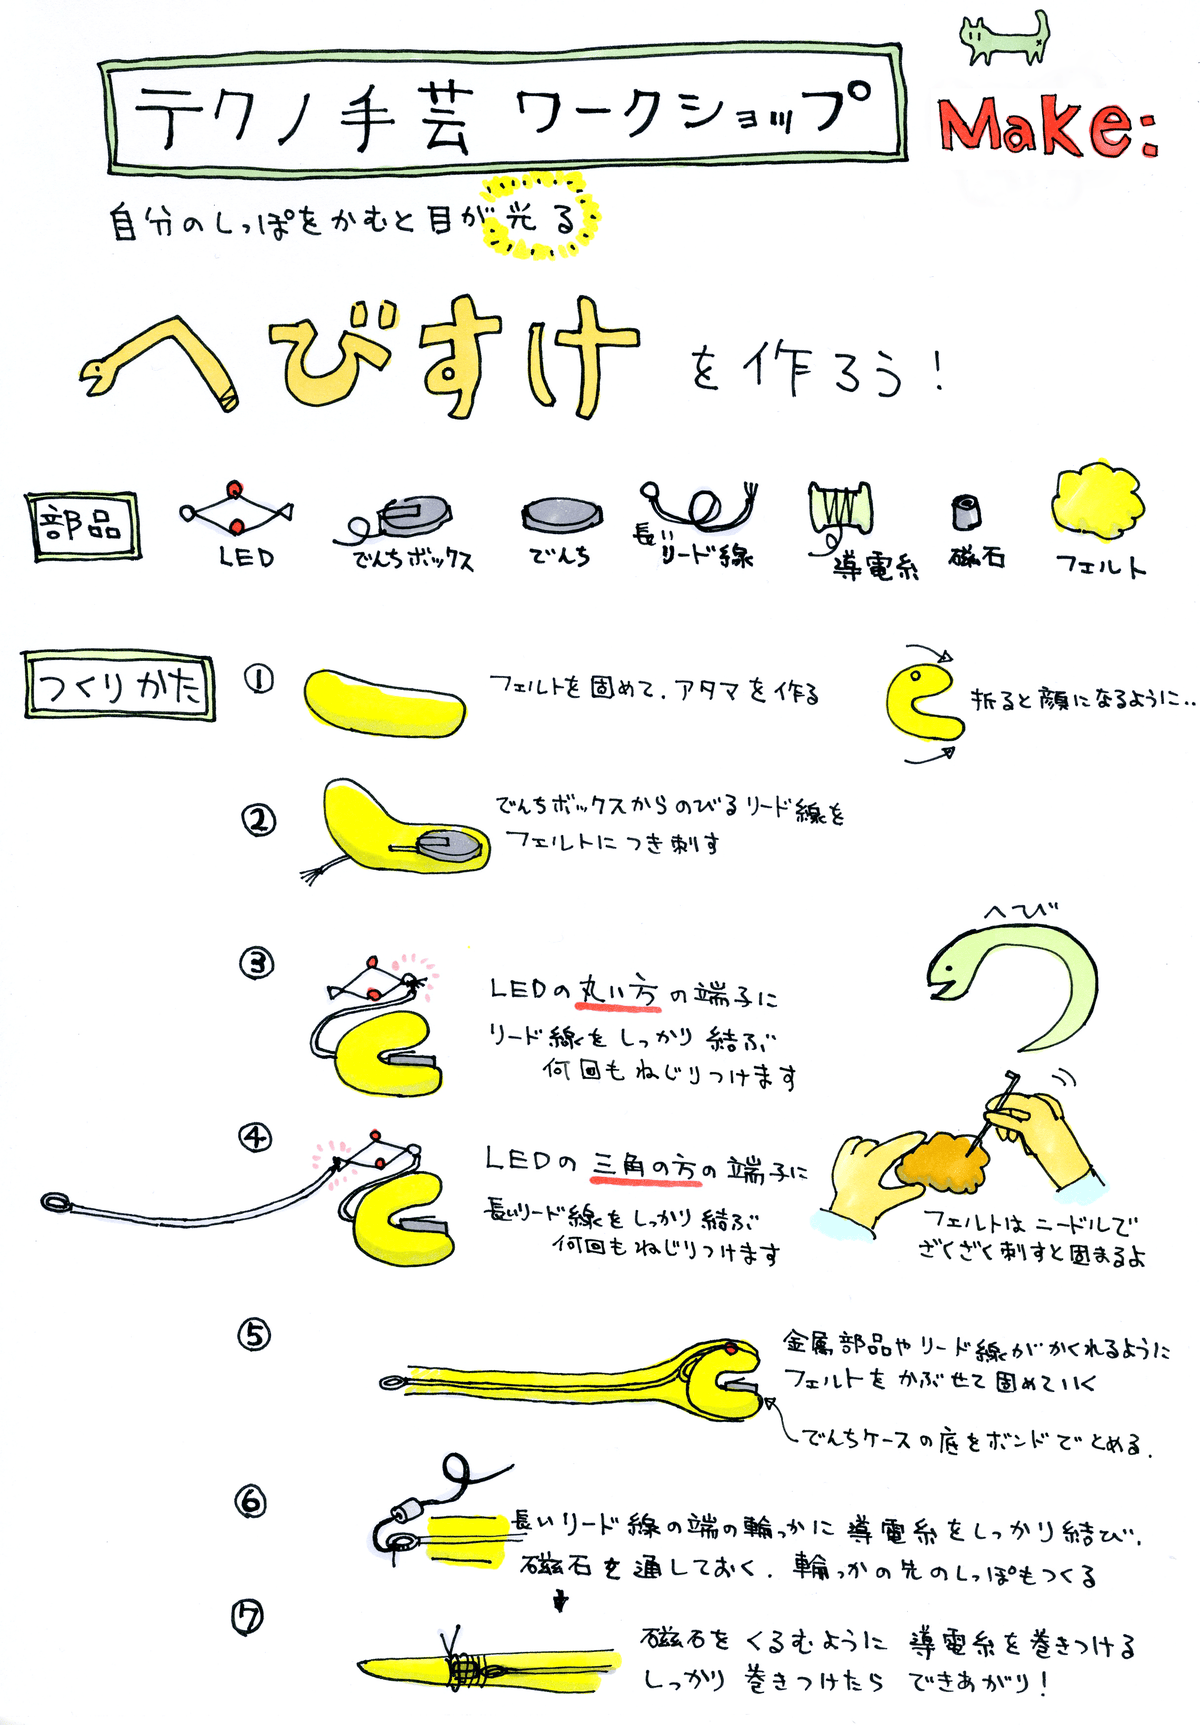 テクノ手芸 ワークショップ
Make:
自分のしっぽをかむと目が光る
へびすけ を作ろう!
部品
LED
でんちボックス
でんち
長いリード線
導電糸
磁石
フェルト
つくりかた
① フェルトを固めて、アタマを作る
折ると顔になるように..
② でんちボックスからのびるリード線を
フェルトにつき刺す
へび
③ LEDの丸い方の端子に
リード線をしっかり結ぶ
何回もねじりつけます
④ LEDの三角の方の端子に
長いリード線をしっかり結ぶ
何回もねじりつけます
フェルトはニードルで
ざくざく刺すと固まるよ
⑤ 金属部品やリード線がかくれるように
フェルトをかぶせて固めていく
でんちケースの底をボンドでとめる.
⑥ 長いリード線の端の輪っかに導電糸をしっかり結び、
磁石を通しておく. 輪っかの先のしっぽもつくる
⑦ 磁石をくるむように 導電糸を巻きつける
しっかり巻きつけたら できあがり!